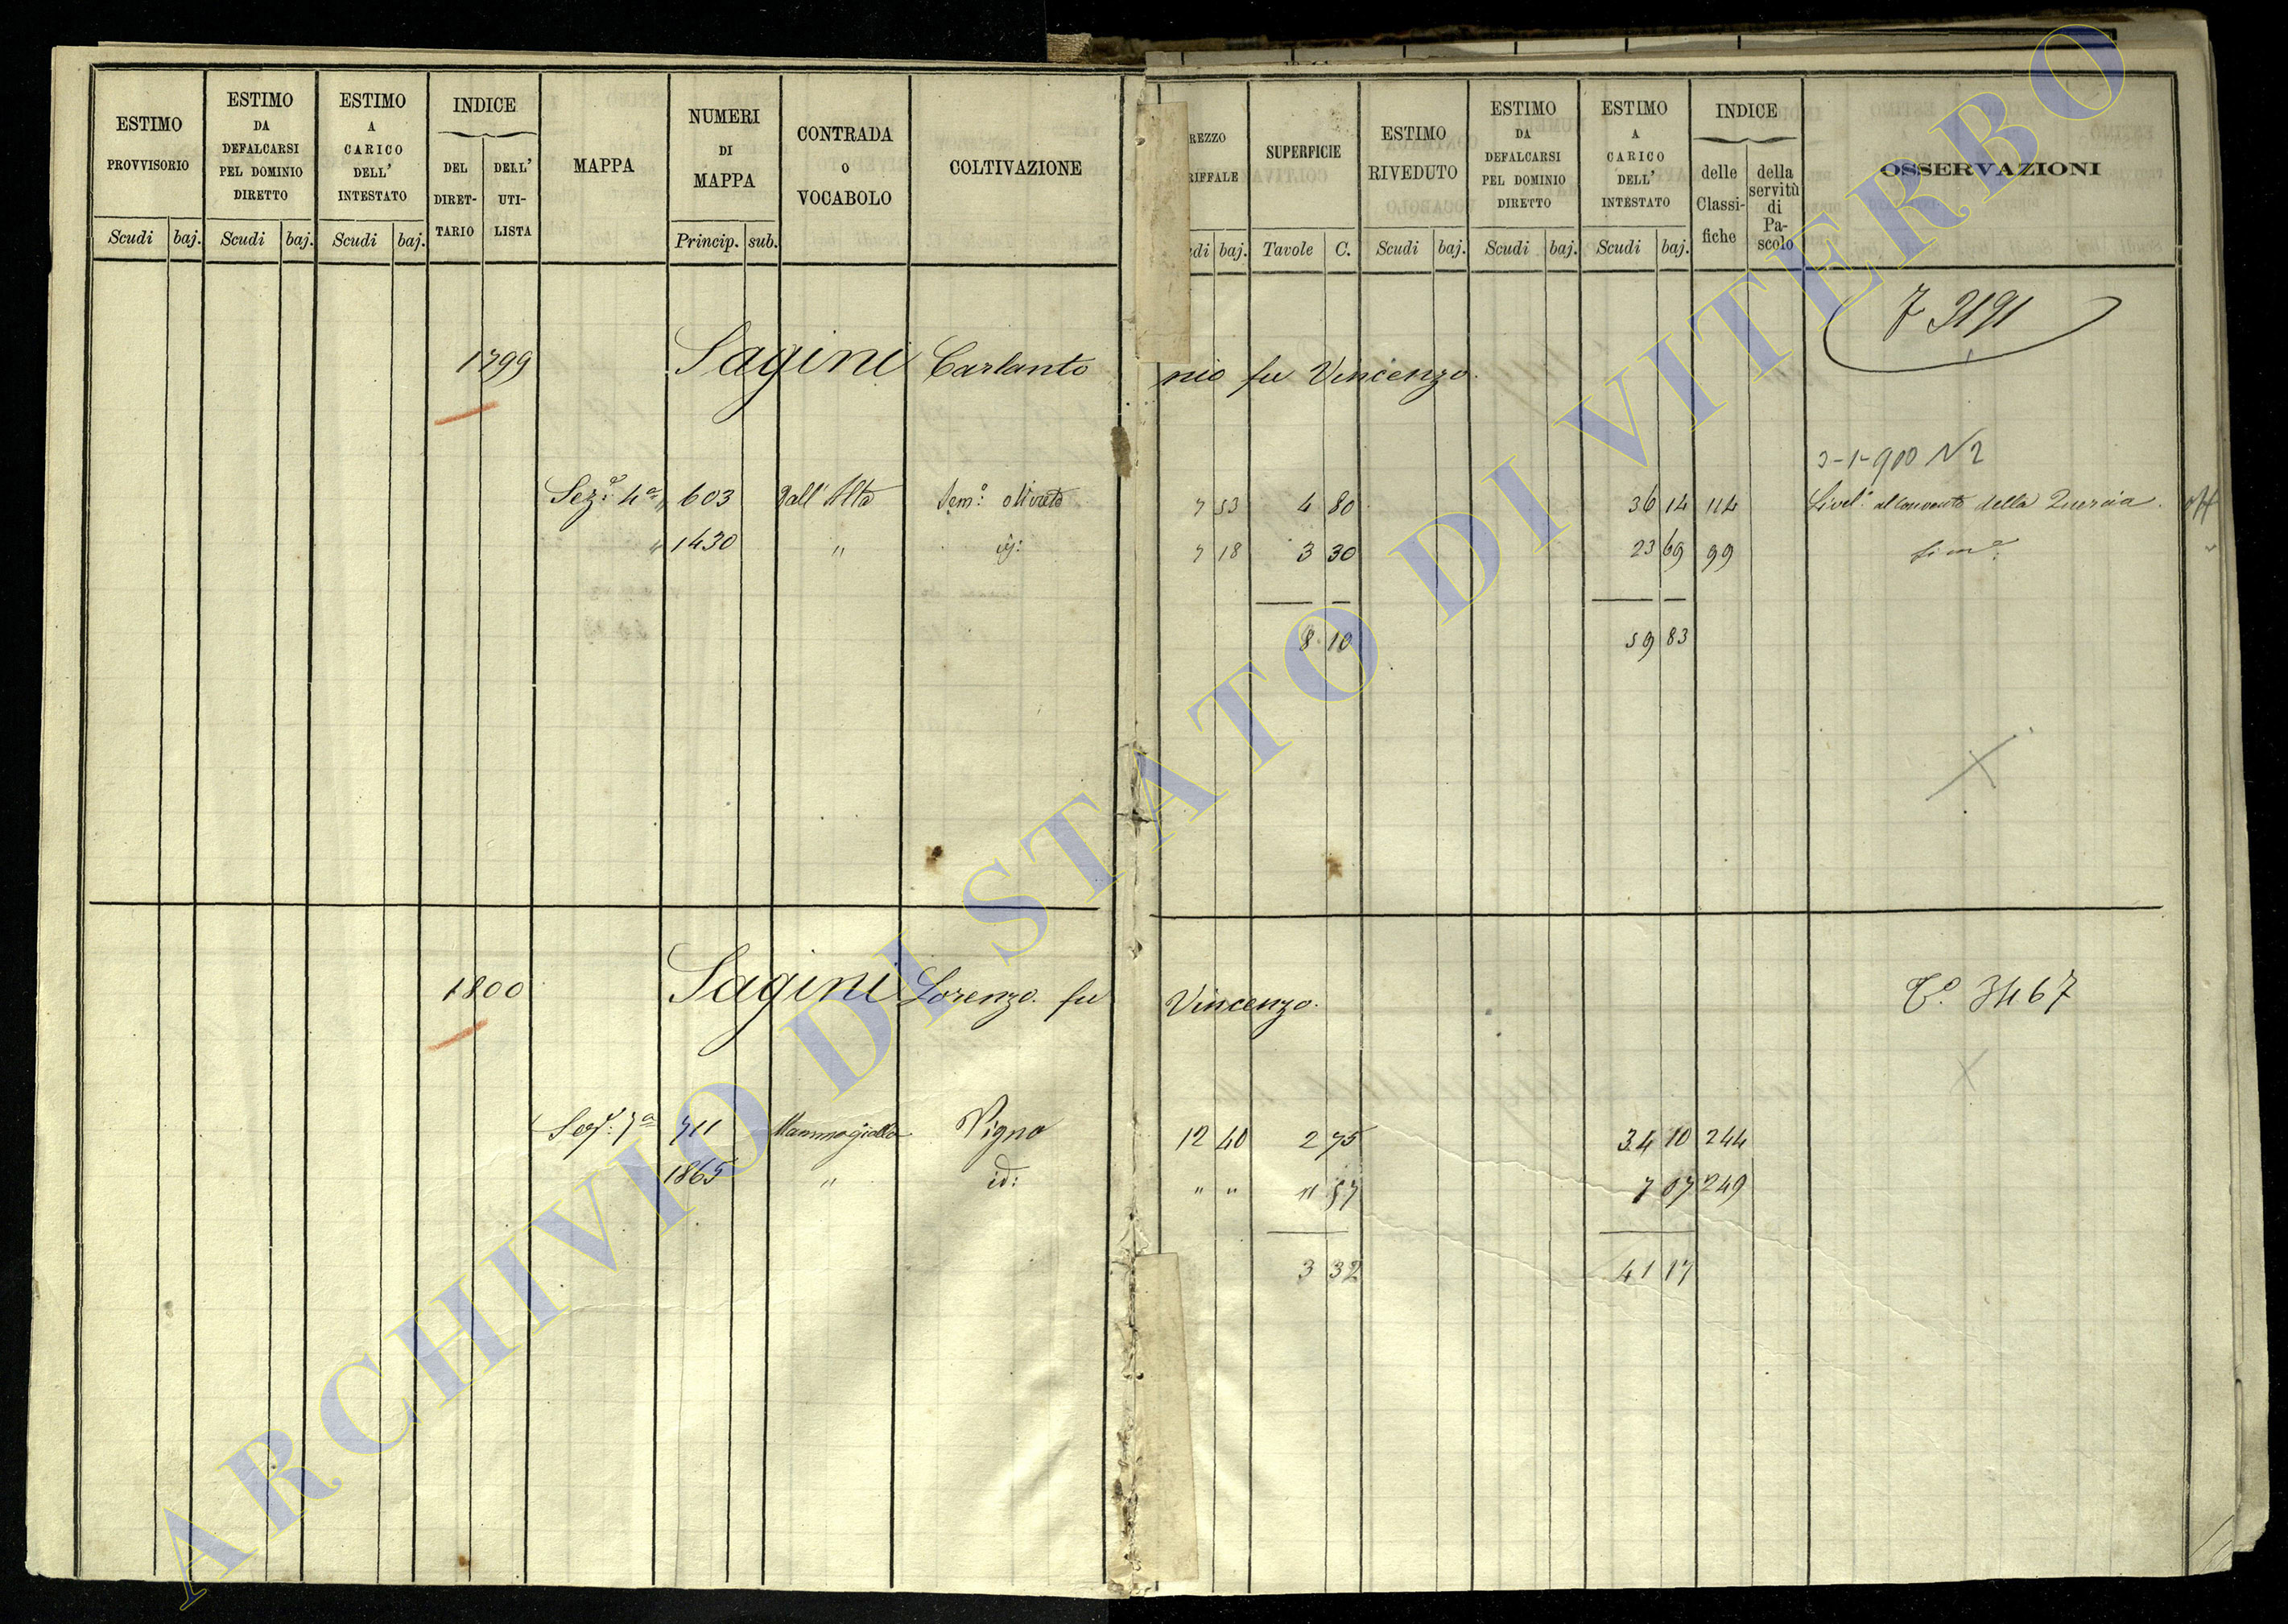 ESTIMO PROVVISORIO
ESTIMO DA DEFALCARSI PEL DOMINIO DIRETTO
ESTIMO A CARICO DELL' INTESTATO
INDICE
DEL DIRET-TARIO
DELL' UTI-LISTA
MAPPA
NUMERI DI MAPPA
CONTRADA o VOCABOLO
COLTIVAZIONE
REZZO RIFFALE
SUPERFICIE
ESTIMO RIVEDUTO
ESTIMO DA DEFALCARSI PEL DOMINIO DIRETTO
ESTIMO A CARICO DELL' INTESTATO
INDICE
delle Classi-fiche
della servitù di Pa-scolo
OSSERVAZIONI
Scudi baj. Scudi baj. Scudi baj. Princip. sub. di baj. Tavole C. Scudi baj. Scudi baj. Scudi baj.
7 3191
1799 Sagini Carlantonio fu Vincenzo.
3-1-900 N 2
Sez.e 4a 603 Pall'Alto Sem.o olivato 7 53 4 80 36 14 114 Livel.o al convento della Quercia.
" 1430 " id: 7 18 3 30 23 69 99 Sim.e
8 10 59 83
1800 Sagini Lorenzo fu Vincenzo. To. 3467
Sez.e 7a 711 Mammagialla Vigna 12 40 2 75 34 10 244
1865 " id: " " " 57 7 07 249
3 32 41 17
ARCHIVIO DI STATO DI VITERBO